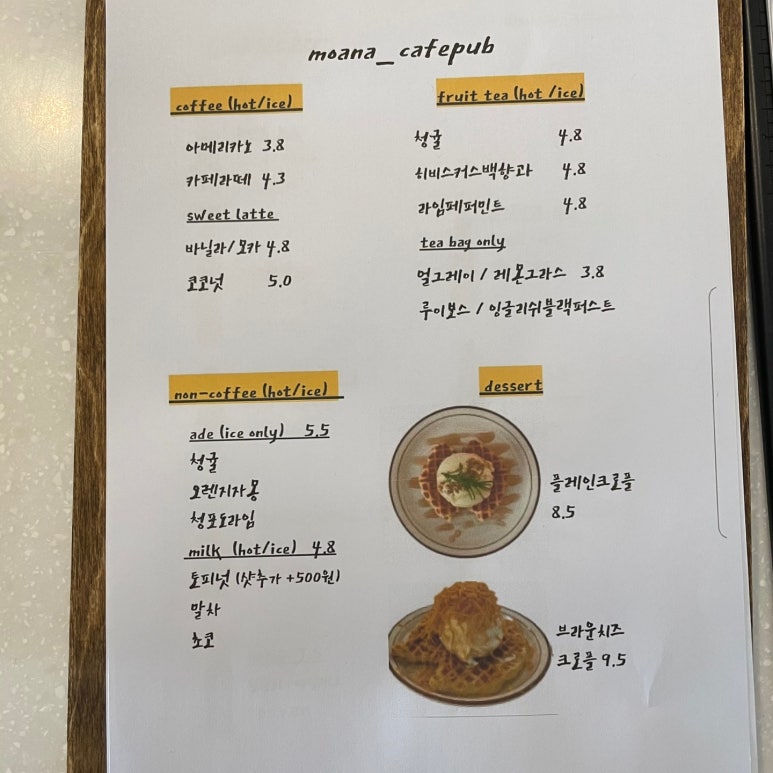 moana_cafepub
coffee (hot/ice)
아메리카노 3.8
카페라떼 4.3
sweet latte
바닐라/모카 4.8
코코넛 5.0
fruit tea (hot /ice)
청귤 4.8
히비스커스백향과 4.8
라임페퍼민트 4.8
tea bag only
얼그레이 / 레몬그라스 3.8
루이보스 / 잉글리쉬블랙퍼스트
non-coffee (hot/ice)
ade (ice only) 5.5
청귤
오렌지자몽
청포도라임
milk (hot/ice) 4.8
토피넛 (샷추가 +500원)
말차
쵸코
dessert
플레인크로플
8.5
브라운치즈
크로플 9.5